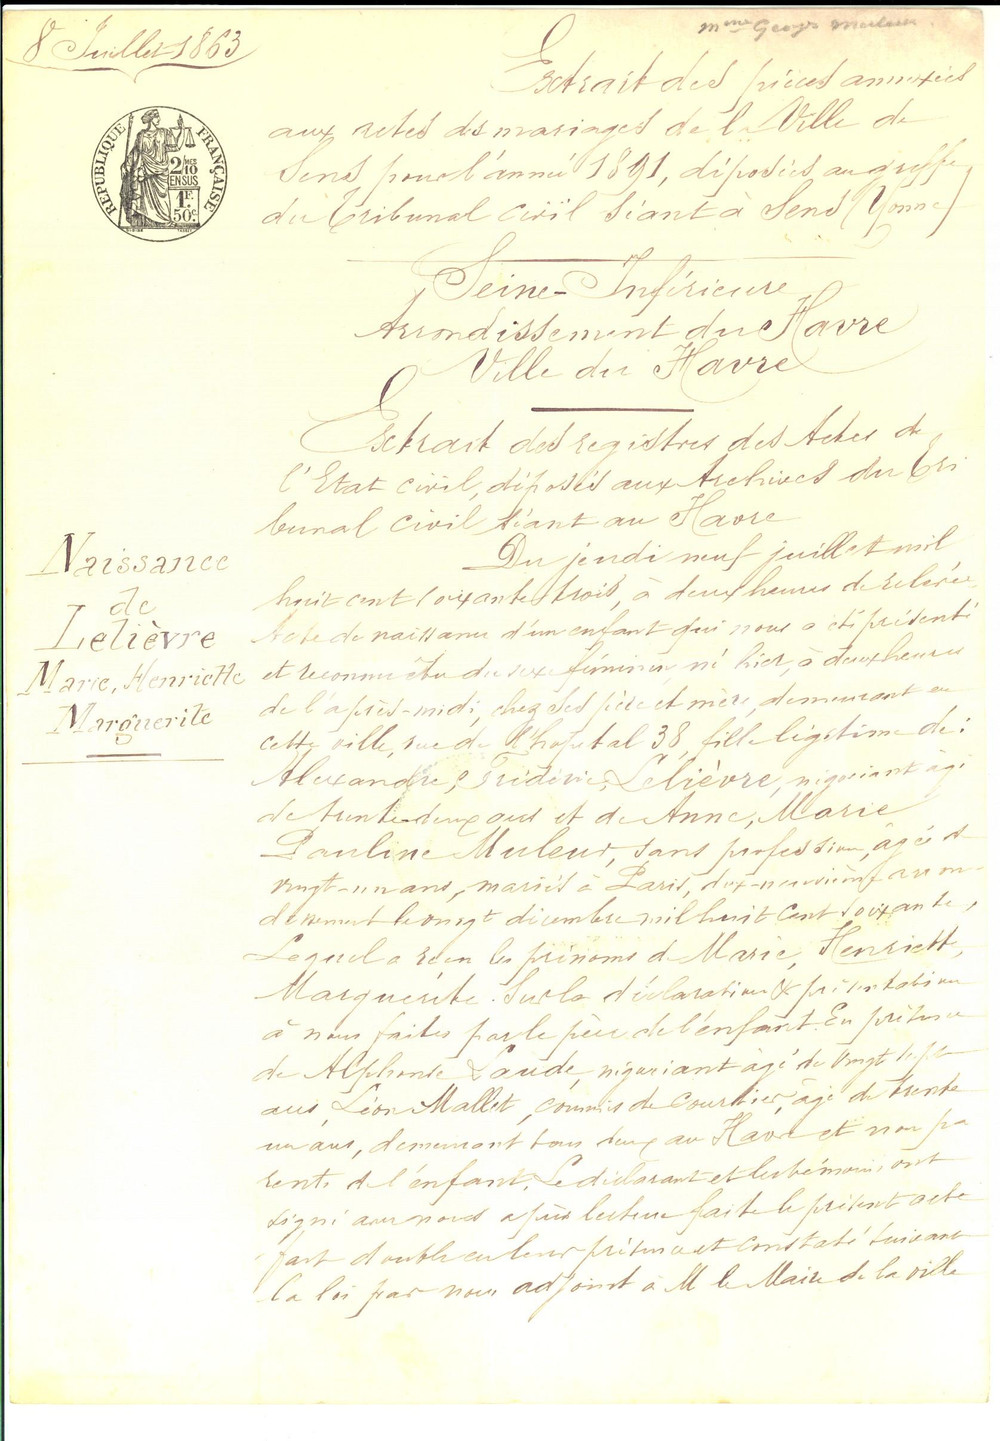 8 Juillet 1863
Mme Georges
RÉPUBLIQUE FRANÇAISE
2/10 MES
EN SUS
1F.
50c.
Extrait des pièces annexées
aux actes de mariages de la Ville de
Sens pour l'année 1891, déposées au greffe
du Tribunal civil séant à Sens (Yonne)
Seine-Inférieure
Arrondissement du Havre
Ville du Havre
Extrait des registres des Actes de
l'Etat civil, déposés aux Archives du Tri
bunal civil séant au Havre
Naissance
de
Lelièvre
Marie, Henriette
Marguerite
Du jeudi neuf juillet mil
huit cent soixante trois, à deux heures de relevée,
Acte de naissance d'un enfant qui nous a été présenté
et reconnu être du sexe féminin, né hier, à deux heures
de l'après-midi, chez ses père et mère, demeurant en
cette ville, rue de l'hopital 38, fille légitime de :
Alexandre, Frédéric, Lelièvre, négociant âgé
de trente-deux ans et de Anne, Marie
Pauline Muleur, sans profession, âgée de
vingt-un ans, mariés à Paris, dix-neuvième arron-
dissement le vingt décembre mil huit cent soixante,
Lequel a reçu les prénoms de Marie, Henriette,
Marguerite. Sur la déclaration & présentation
à nous faites par le père de l'enfant. En présence
de Alphonse Laude, négociant âgé de vingt sept
ans, Léon Mallet, commis de courtier, âgé de trente
un ans, demeurant tous deux au Havre et non pa
rents de l'enfant. Le déclarant et les témoins ont
signé avec nous après lecture faite le présent acte
fait double en leur présence et constaté suivant
la loi par nous adjoint à M le Maire de la ville